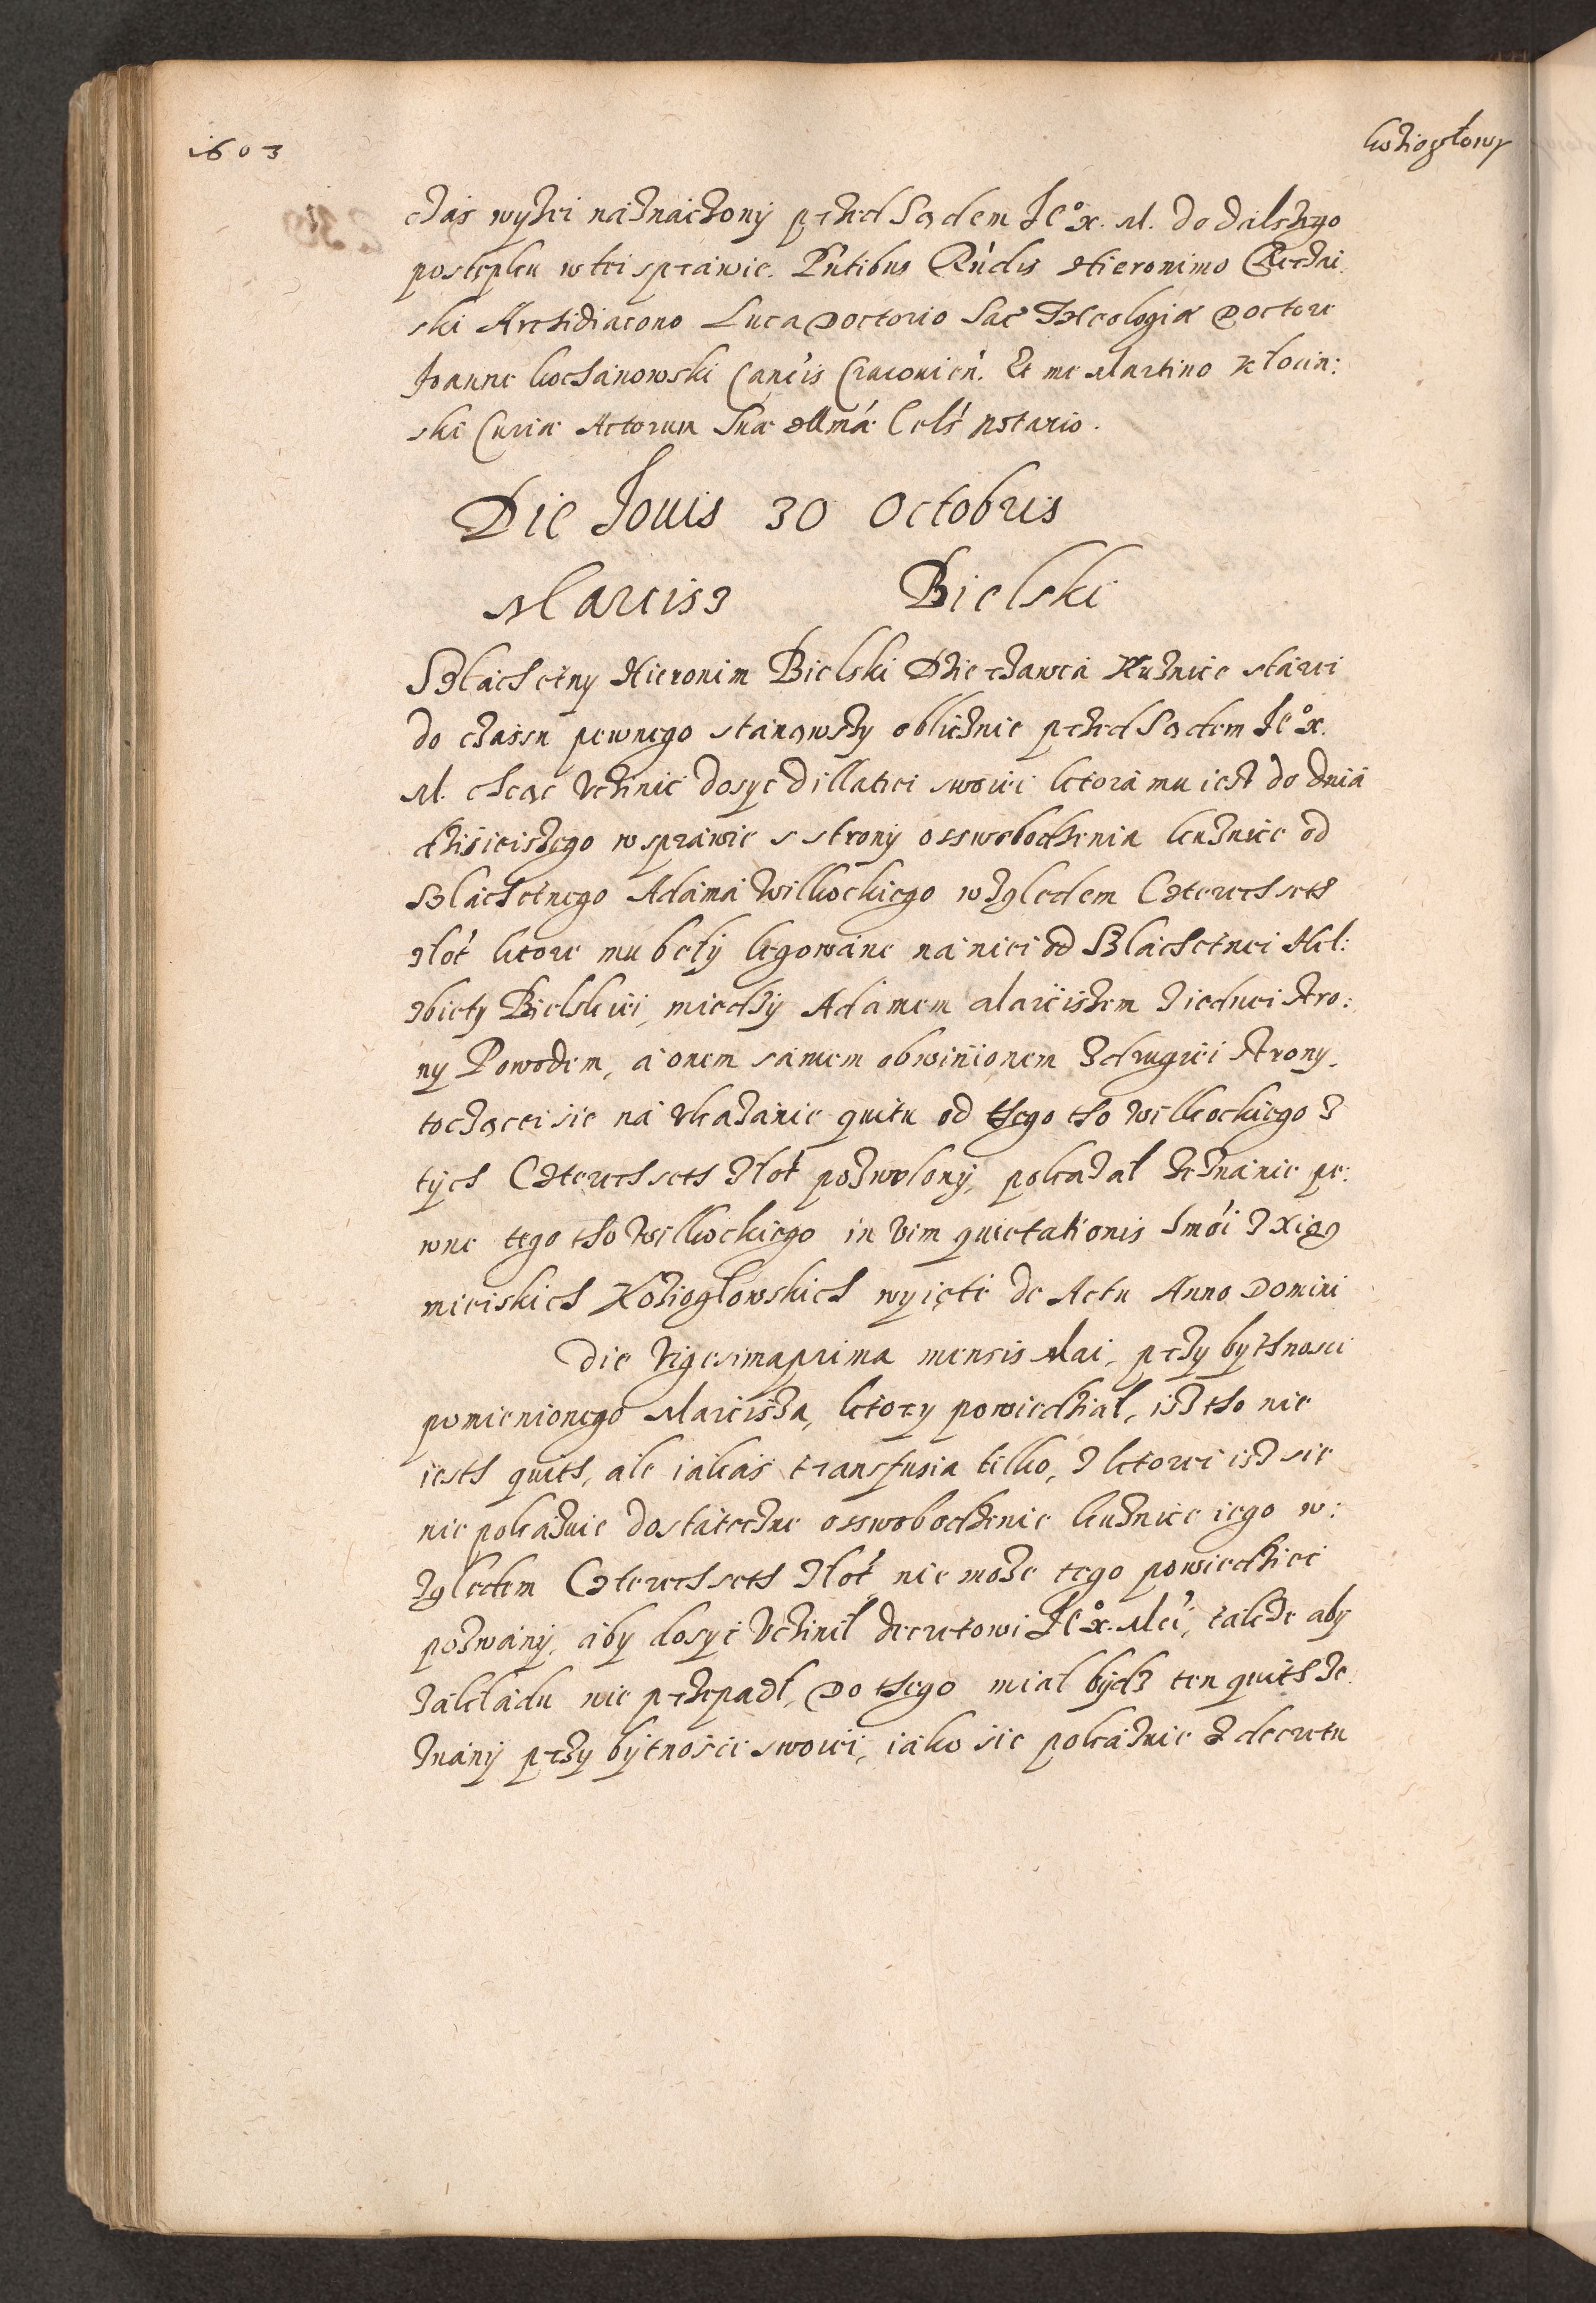 1603
koziogłowy
czas wyżei náznáczony przed Sądem Je° x. M. do dálszego
postępku w tei spráwie. Pńtibus Rńdis Hieronimo Reczai
ski Archidiacono Luca Doctorio Sac Theologiæ Doctore
Joanne kochanowski Cancis Cracouień. Et me Martino Kłocin:
ski Curiæ Actorum Suæ Illmæ Cels notario.
Die Jouis 30 Octobris
Marcisz Bielski
Szláchetny Hieronim Bielski Dzierżawcá Kuźnice stárei
do czássu pewnego stánąwszy oblicznie przed Sądem Je° x.
M. chcąc Vczinić dosyć dillátiei swoiei ktora mu iest do dniá
dzisieiszego w spráwie s strony osswobodzenia kuźnice od
Szláchetnego Adámá Wilkockiego względem Czterechseth
złot ktore mu beły legowáne ná niei od Szláchetnei Hel:
zbiety Bielskiei, miedzy Adámem Marciszem z iednei stro:
ny Powodem, á onem sámem obwinionem z drugiei strony.
toczącei sie ná vkazánie quitu od thego tho Wilkockiego z
tych Czterechseth złot pozwolony, pokazał zeznánie pe:
wne tego tho Wilkockiego in vim quietationis Smći z Xiąg
mieiskich Koziogłowskich wyięte de Actu Anno Domini
Die Vigesimaprima mensis Mai, przy bythnosci
pomienionego Marcisza, ktory powiedział, isz tho nie
iesth quith, ale iákás transfusia tilko, z ktorei isz sie
nie pokázuie dostáteczne osswobodzenie kuźnice iego w:
zględem Czterechseth złot nie może tego powiedzieć
pozwány, áby dosyć Vczinił decretowi Je° x. Mći, tákże aby
zakłádu nie przepadł, Do thego miał bydz ten quith ze
znány przy bytności swoiei, iáko sie pokázuie z decretu